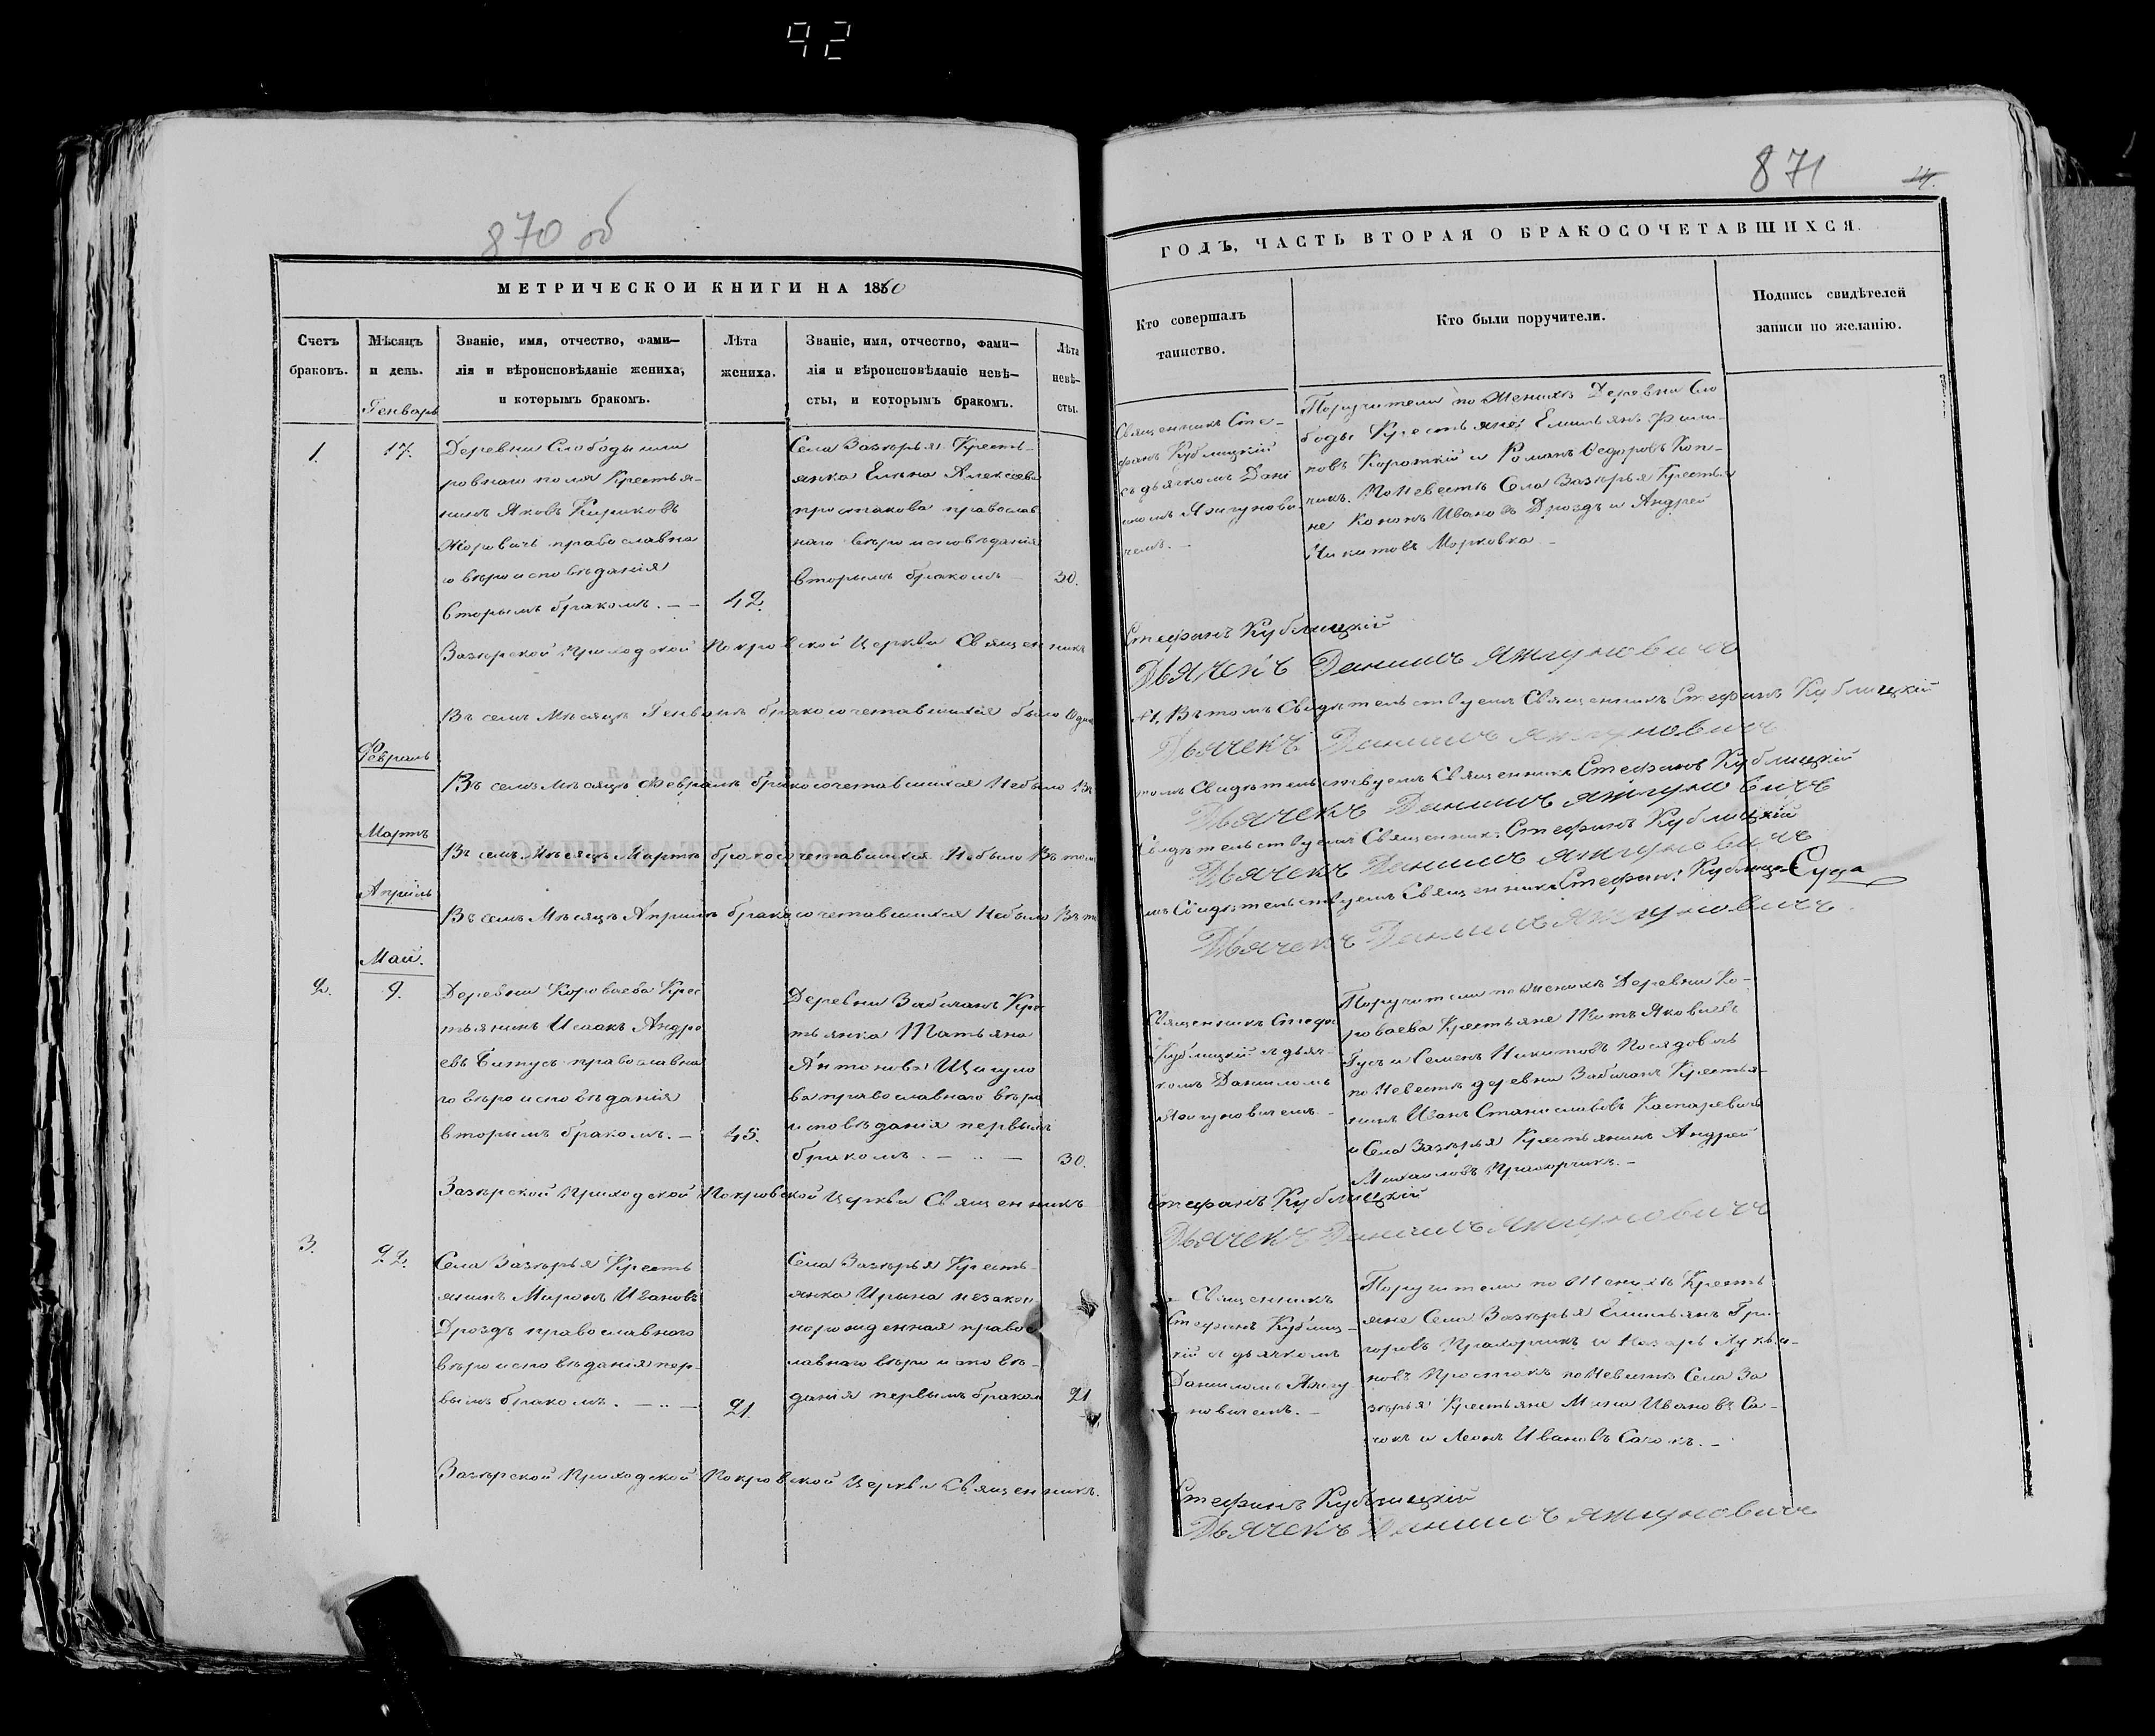 92
870 об
МЕТРИЧЕСКОЙ КНИГИ НА 1860
Счетъ браковъ.
Мѣсяцъ и день.
Званіе, имя, отчество, фами-
лія и вѣроисповѣданіе жениха,
и которымъ бракомъ.
Лѣта жениха.
Званіе, имя, отчество, фами-
лія и вѣроисповѣданіе невѣ-
сты, и которымъ бракомъ.
Лѣта невѣ-
сты.
Генварь
1.
17.
Деревни Слободы или
ровнаго поля Крестья-
нинъ Яковъ Кириковъ
православна
го вѣроисповѣданія
вторымъ бракомъ. – –
42.
Села Вазгѣрья Кресть-
янка Елена Алексеева
православ
наго вѣроисповѣданія
вторымъ бракомъ
30.
Приходской Покровской Церкви Священникъ
Въ семъ Мѣсяцѣ Генварѣ бракосочетавшихся было Одинъ
Февраль
Въ семъ Мѣсяцѣ Февралѣ бракосочетавшихся Небыло Въ
Мартъ
Въ семъ Мѣсяцѣ Мартѣ бракосочетавшихся Небыло Въ томъ
Апрѣль
Въ семъ Мѣсяцѣ Апрѣлѣ бракосочетавшихся Небыло Въ то
Май.
2.
9.
Деревни Короваева Крес
тьянинъ Исаакъ Андре
евъ православна
го вѣроисповѣданія
вторымъ бракомъ. –
45.
Деревни Крес
тьянка Татьяна
Антонова
ва православнаго вѣро
исповѣданія первымъ
бракомъ. –
30.
Приходской Покровской Церкви Священникъ
3.
22.
Села Кресть
янинъ Миронъ Ивановъ
Дроздъ православнаго
вѣроисповѣданія пер-
вымъ бракомъ. –
21.
Села Кресть-
янка Ирина незакон
норожденная правос
лавнаго вѣроисповѣ-
данія первымъ браком
21
Приходской Покровской Церкви Священникъ.
871
ГОДЪ, ЧАСТЬ ВТОРАЯ О БРАКОСОЧЕТАВШИХСЯ.
Кто совершалъ
таинство.
Кто были поручители.
Подпись свидѣтелей
записи по желанію.
Священникъ Сте-
фанъ Кублицкій
съ дьячкомъ Дани
иломъ Яжгунови
чемъ. –
Поручители по Женихѣ Деревни Сло
боды Крестьяне: Емильянъ Фили-
повъ Короткій и Романъ Ѳедоровъ Коп-
чикъ. По Невестѣ Села Крестья
не Кононъ Ивановъ Дроздъ и Андрей
Никитовъ Морковка –
Стефанъ Кублицкій
Дьячекъ Даниилъ Яжгуновичъ
№1. Въ томъ Свидѣтельствуемъ Священникъ Стефанъ Кублицкій
Дьячекъ Даниилъ Яжгуновичъ
томъ Свидѣтельствуемъ Священникъ Стефанъ Кублицкій
Дьячекъ Даниилъ Яжгуновичъ
Свидѣтельствуемъ Священникъ Стефанъ Кублицкій
Дьячекъ Даниилъ Яжгуновичъ
мъ Свидѣтельствуемъ Священникъ Стефанъ
Дьячекъ Даниилъ Яжгуновичъ
Священникъ Стефа
Кублицкій съ дьяч-
комъ Данииломъ
Яжгуновичемъ –
Поручители по Женихѣ Деревни Ко-
роваева Крестьяне Титъ Яковлевъ
Гусь и Семенъ Никитовъ
по Невестѣ деревни Крестья-
нинъ Иванъ Станиславовъ Каспаревичъ
и Села Крестьянинъ Андрей
Михаиловъ Прахорчикъ. –
Стефанъ Кублицкій
Дьячекъ Даниилъ Яжгуновичъ
Священникъ
Стефанъ Кублиц-
кій съ дьячкомъ
Данииломъ Яжгу
новичемъ. –
Поручители по Женихѣ Кресть
яне Села Емильянъ Гри-
горовъ Прахорчикъ и Назаръ
новъ Простакъ по Невестѣ Села За
Крестьяне Мина Ивановъ Са-
чокъ и Леонъ Ивановъ Сачокъ. –
Стефанъ Кублицкій
Дьячекъ Даниилъ Яжгуновичъ